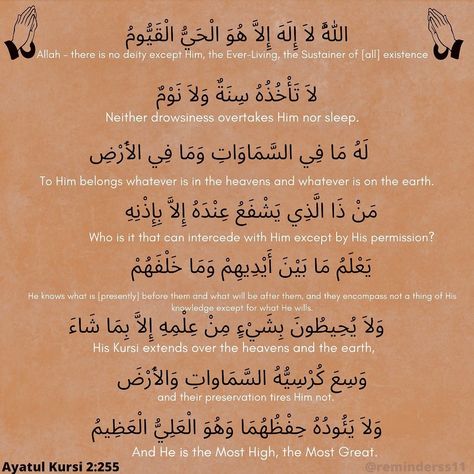 اللّهُ لاَ إِلَهَ إِلاَّ هُوَ الْحَيُّ الْقَيُّومُ
Allah – there is no deity except Him, the Ever-Living, the Sustainer of [all] existence
لاَ تَأْخُذُهُ سِنَةٌ وَلاَ نَوْمٌ
Neither drowsiness overtakes Him nor sleep.
لَهُ مَا فِي السَّمَاوَاتِ وَمَا فِي الأَرْضِ
To Him belongs whatever is in the heavens and whatever is on the earth.
مَنْ ذَا الَّذِي يَشْفَعُ عِنْدَهُ إِلاَّ بِإِذْنِهِ
Who is it that can intercede with Him except by His permission?
يَعْلَمُ مَا بَيْنَ أَيْدِيهِمْ وَمَا خَلْفَهُمْ
He knows what is [presently] before them and what will be after them, and they encompass not a thing of His
knowledge except for what He wills.
وَلاَ يُحِيطُونَ بِشَيْءٍ مِنْ عِلْمِهِ إِلاَّ بِمَا شَاءَ
His Kursi extends over the heavens and the earth,
وَسِعَ كُرْسِيُّهُ السَّمَاواتِ وَالأَرْضَ
and their preservation tires Him not.
وَلاَ يَئُودُهُ حِفْظُهُمَا وَهُوَ الْعَلِيُّ الْعَظِيمُ
And He is the Most High, the Most Great.
Ayatul Kursi 2:255
@reminderss11